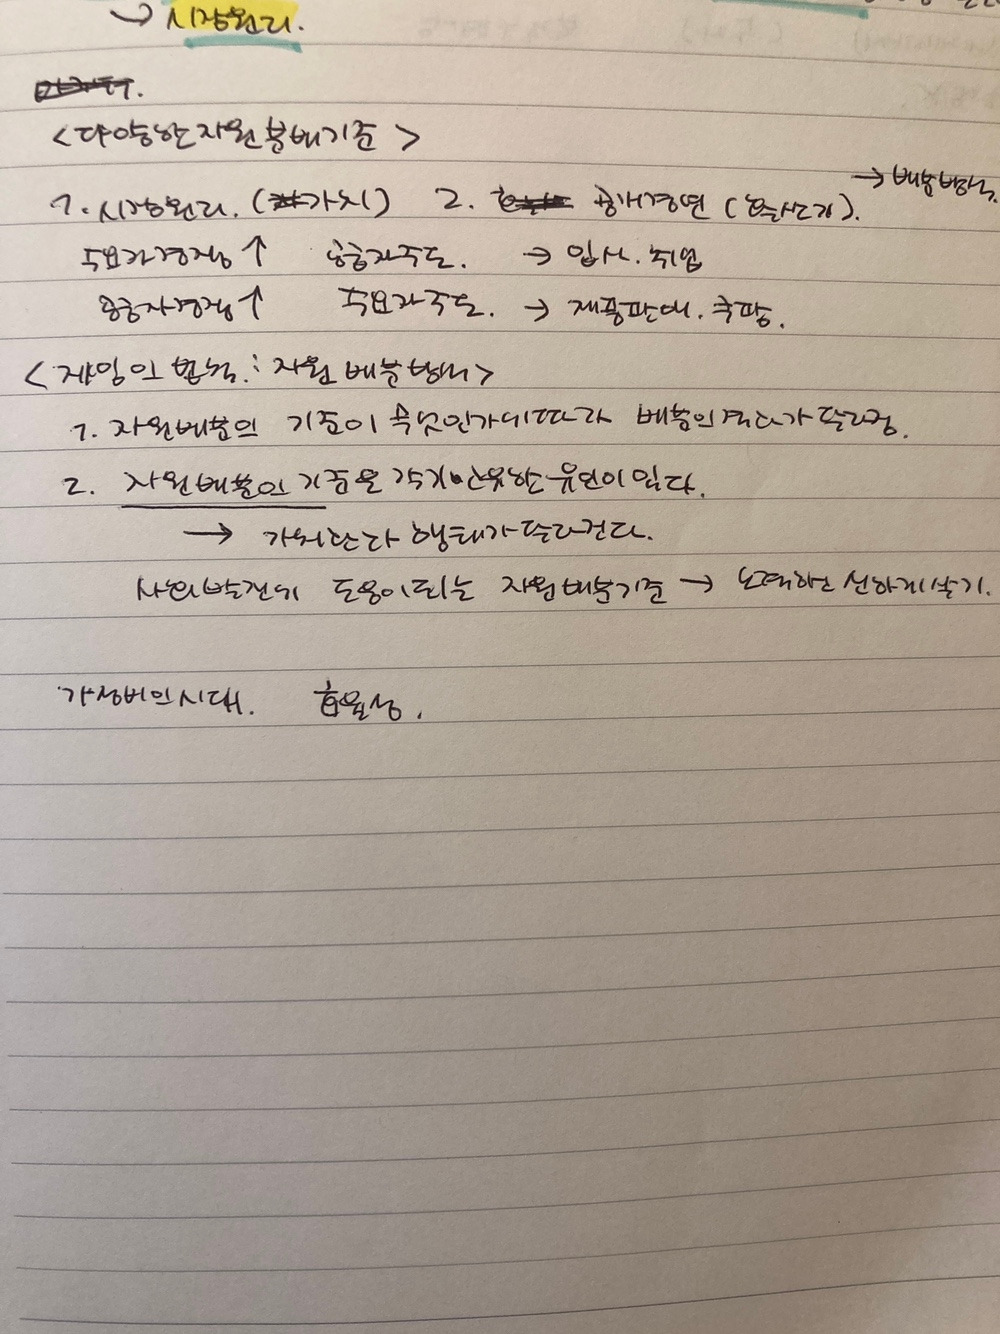 → 시장원리.
<다양한 자원 분배기준>
→ 배분방식.
1. 시장원리. (가치) 2. 공개경연 (콩쿠르).
수요자경쟁↑ 공급자주도. → 입시. 취업
공급자경쟁↑ 수요자주도. → 제품판매. 쿠팡.
<게임의 법칙: 자원 배분 방식>
1. 자원배분의 기준이 무엇인가에 따라 배분의 결과가 달라짐.
2. 자원배분의 기준을 갖게 한 유인이 있다.
→ 가치관과 행태가 달라진다.
사회발전에 도움이 되는 자원배분기준 → 노력하고 선하게 살기.
가성비의 시대. 효율성.